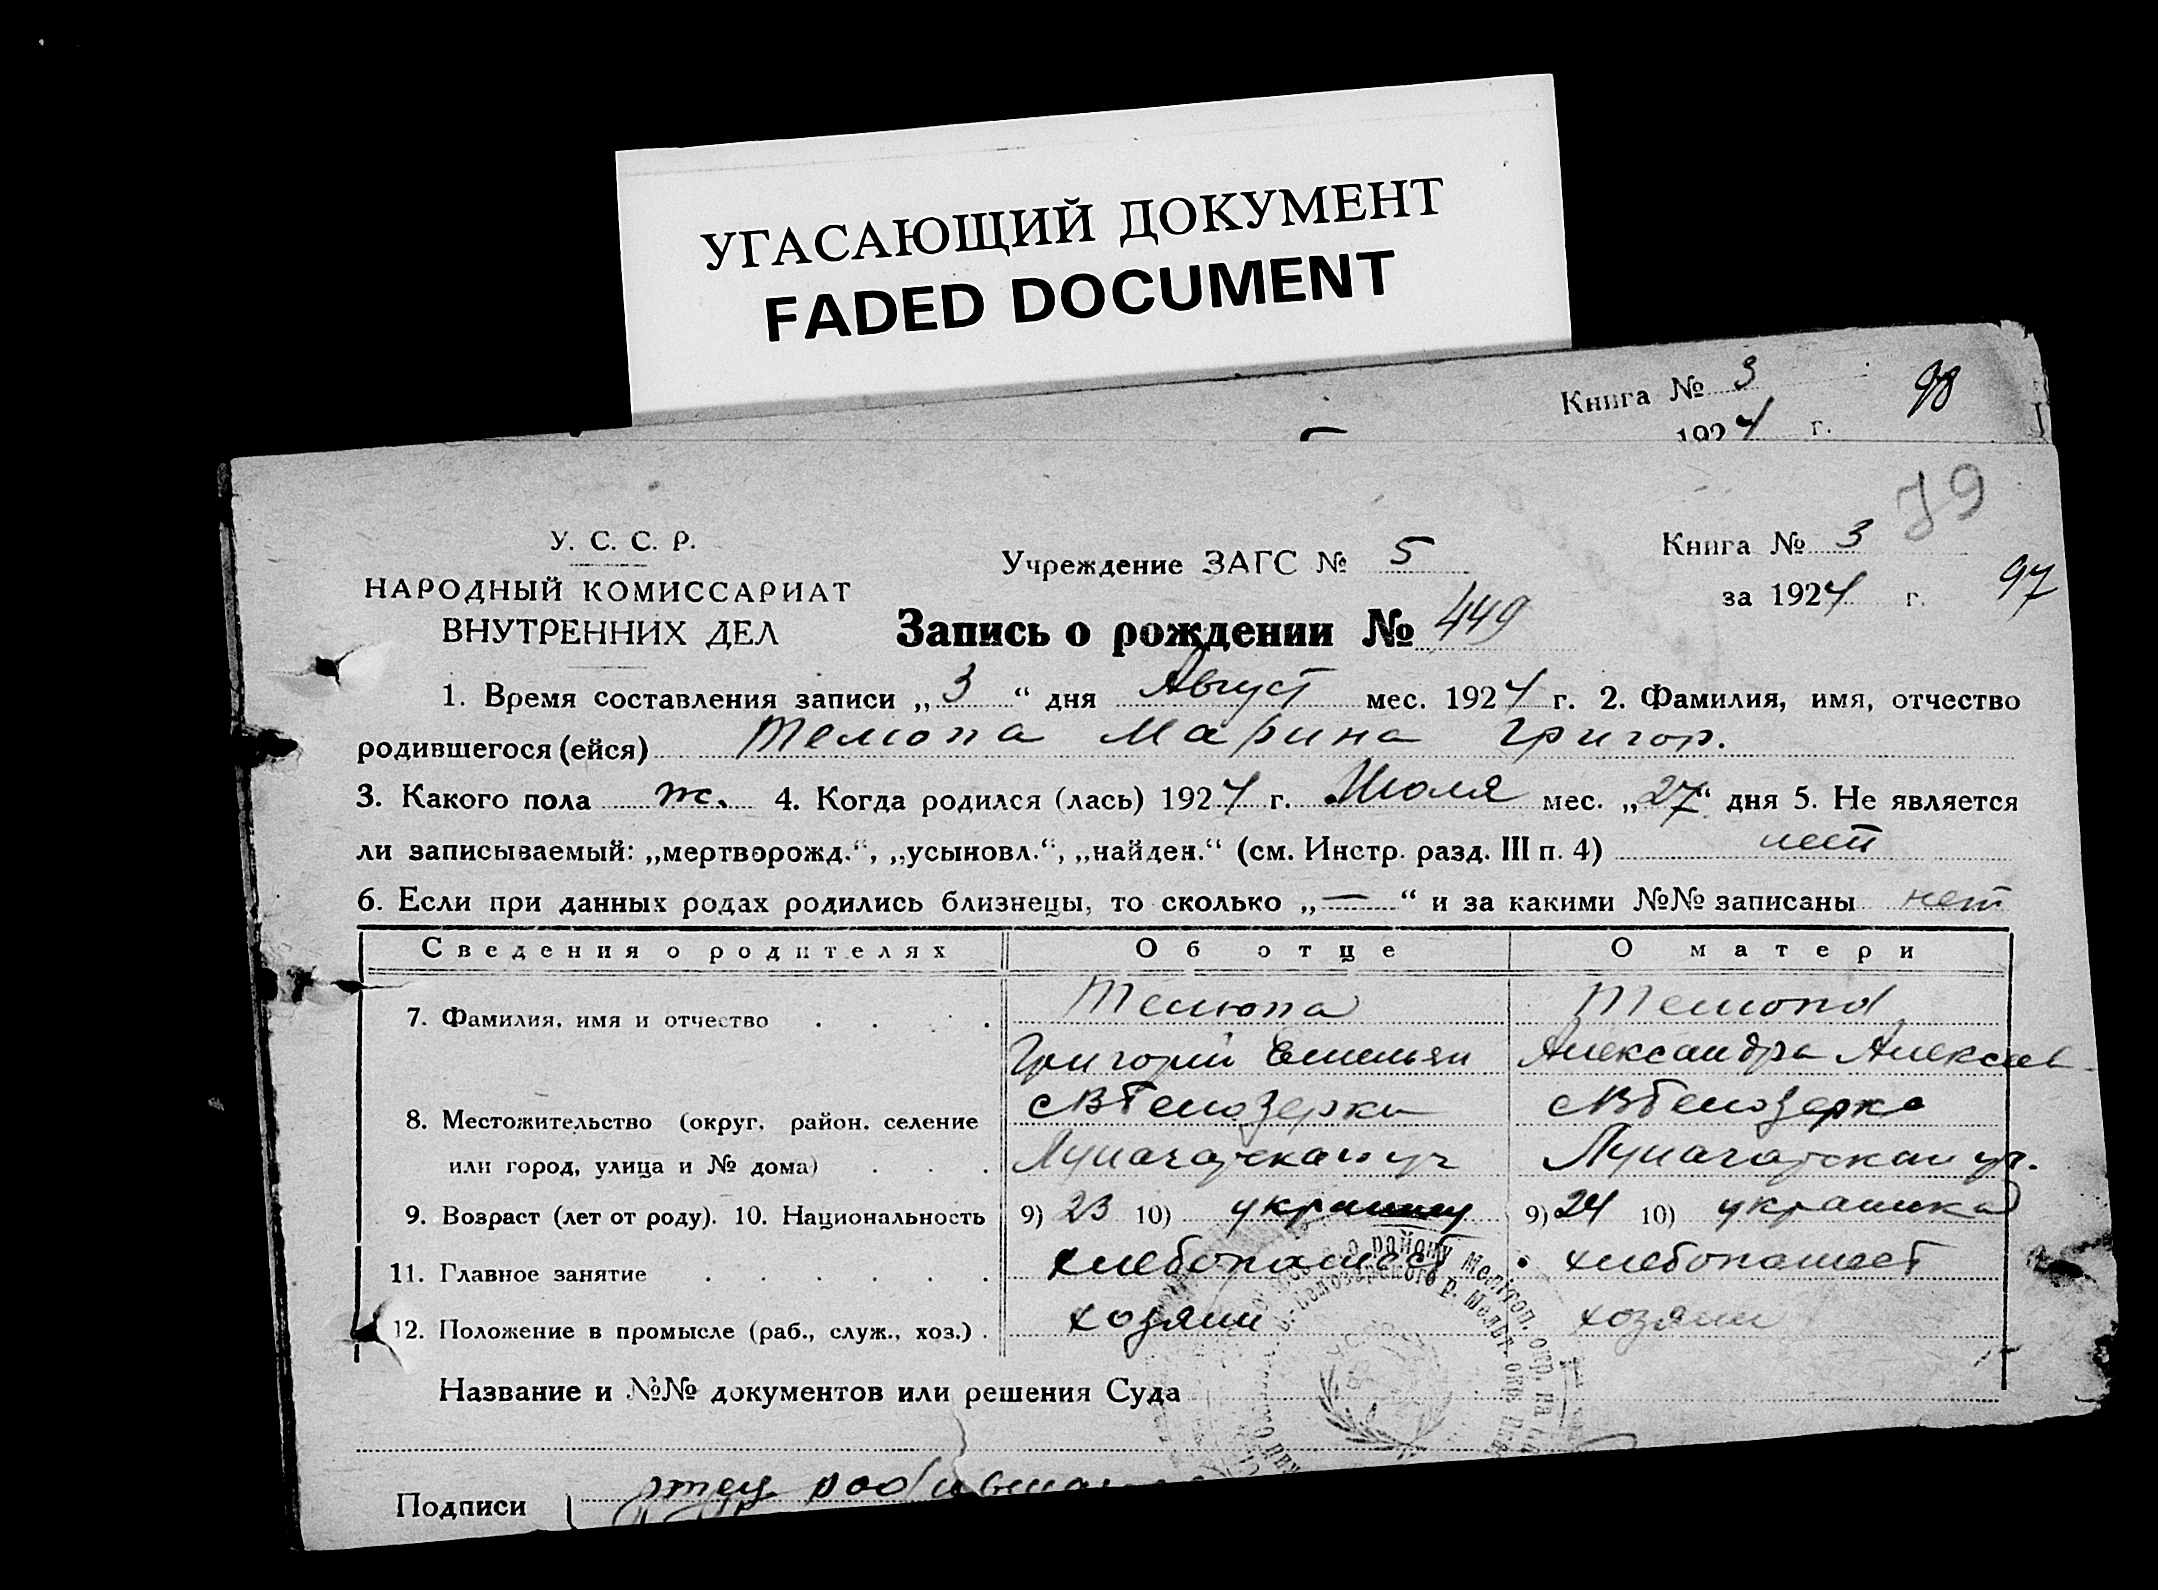 УГАСАЮЩИЙ ДОКУМЕНТ
FADED DOCUMENT
Книга № 3
1924 г.
98
79
У. С. С. Р.
НАРОДНЫЙ КОМИССАРИАТ
ВНУТРЕННИХ ДЕЛ
Учреждение ЗАГС № 5
Книга № 3
за 1924 г.
97
Запись о рождении № 449
1. Время составления записи „3“ дня Август мес. 1924 г. 2. Фамилия, имя, отчество
родившегося (ейся) Телюпа Марина Григор.
3. Какого пола ж. 4. Когда родился (лась) 1924 г. Июля мес. „27“ дня 5. Не является
ли записываемый: „мертворожд.“, „усыновл.“, „найден.“ (см. Инстр. разд. III п. 4) нет
6. Если при данных родах родились близнецы, то сколько „—“ и за какими №№ записаны нет
Сведения о родителях Об отце О матери
7. Фамилия, имя и отчество Телюпа Телюпа
Григорий Емельян Александра Алексеев
8. Местожительство (округ, район, селение СВБелозерки СВБелозерка
или город, улица и № дома) Луначарская ул Луначарская ул.
9. Возраст (лет от роду). 10. Национальность 9) 23 10) 9) 24 10) украинка
11. Главное занятие хлебопашест хлебопашест
12. Положение в промысле (раб., служ., хоз.) хозяин хозяин
Название и №№ документов или решения Суда
Подписи отец